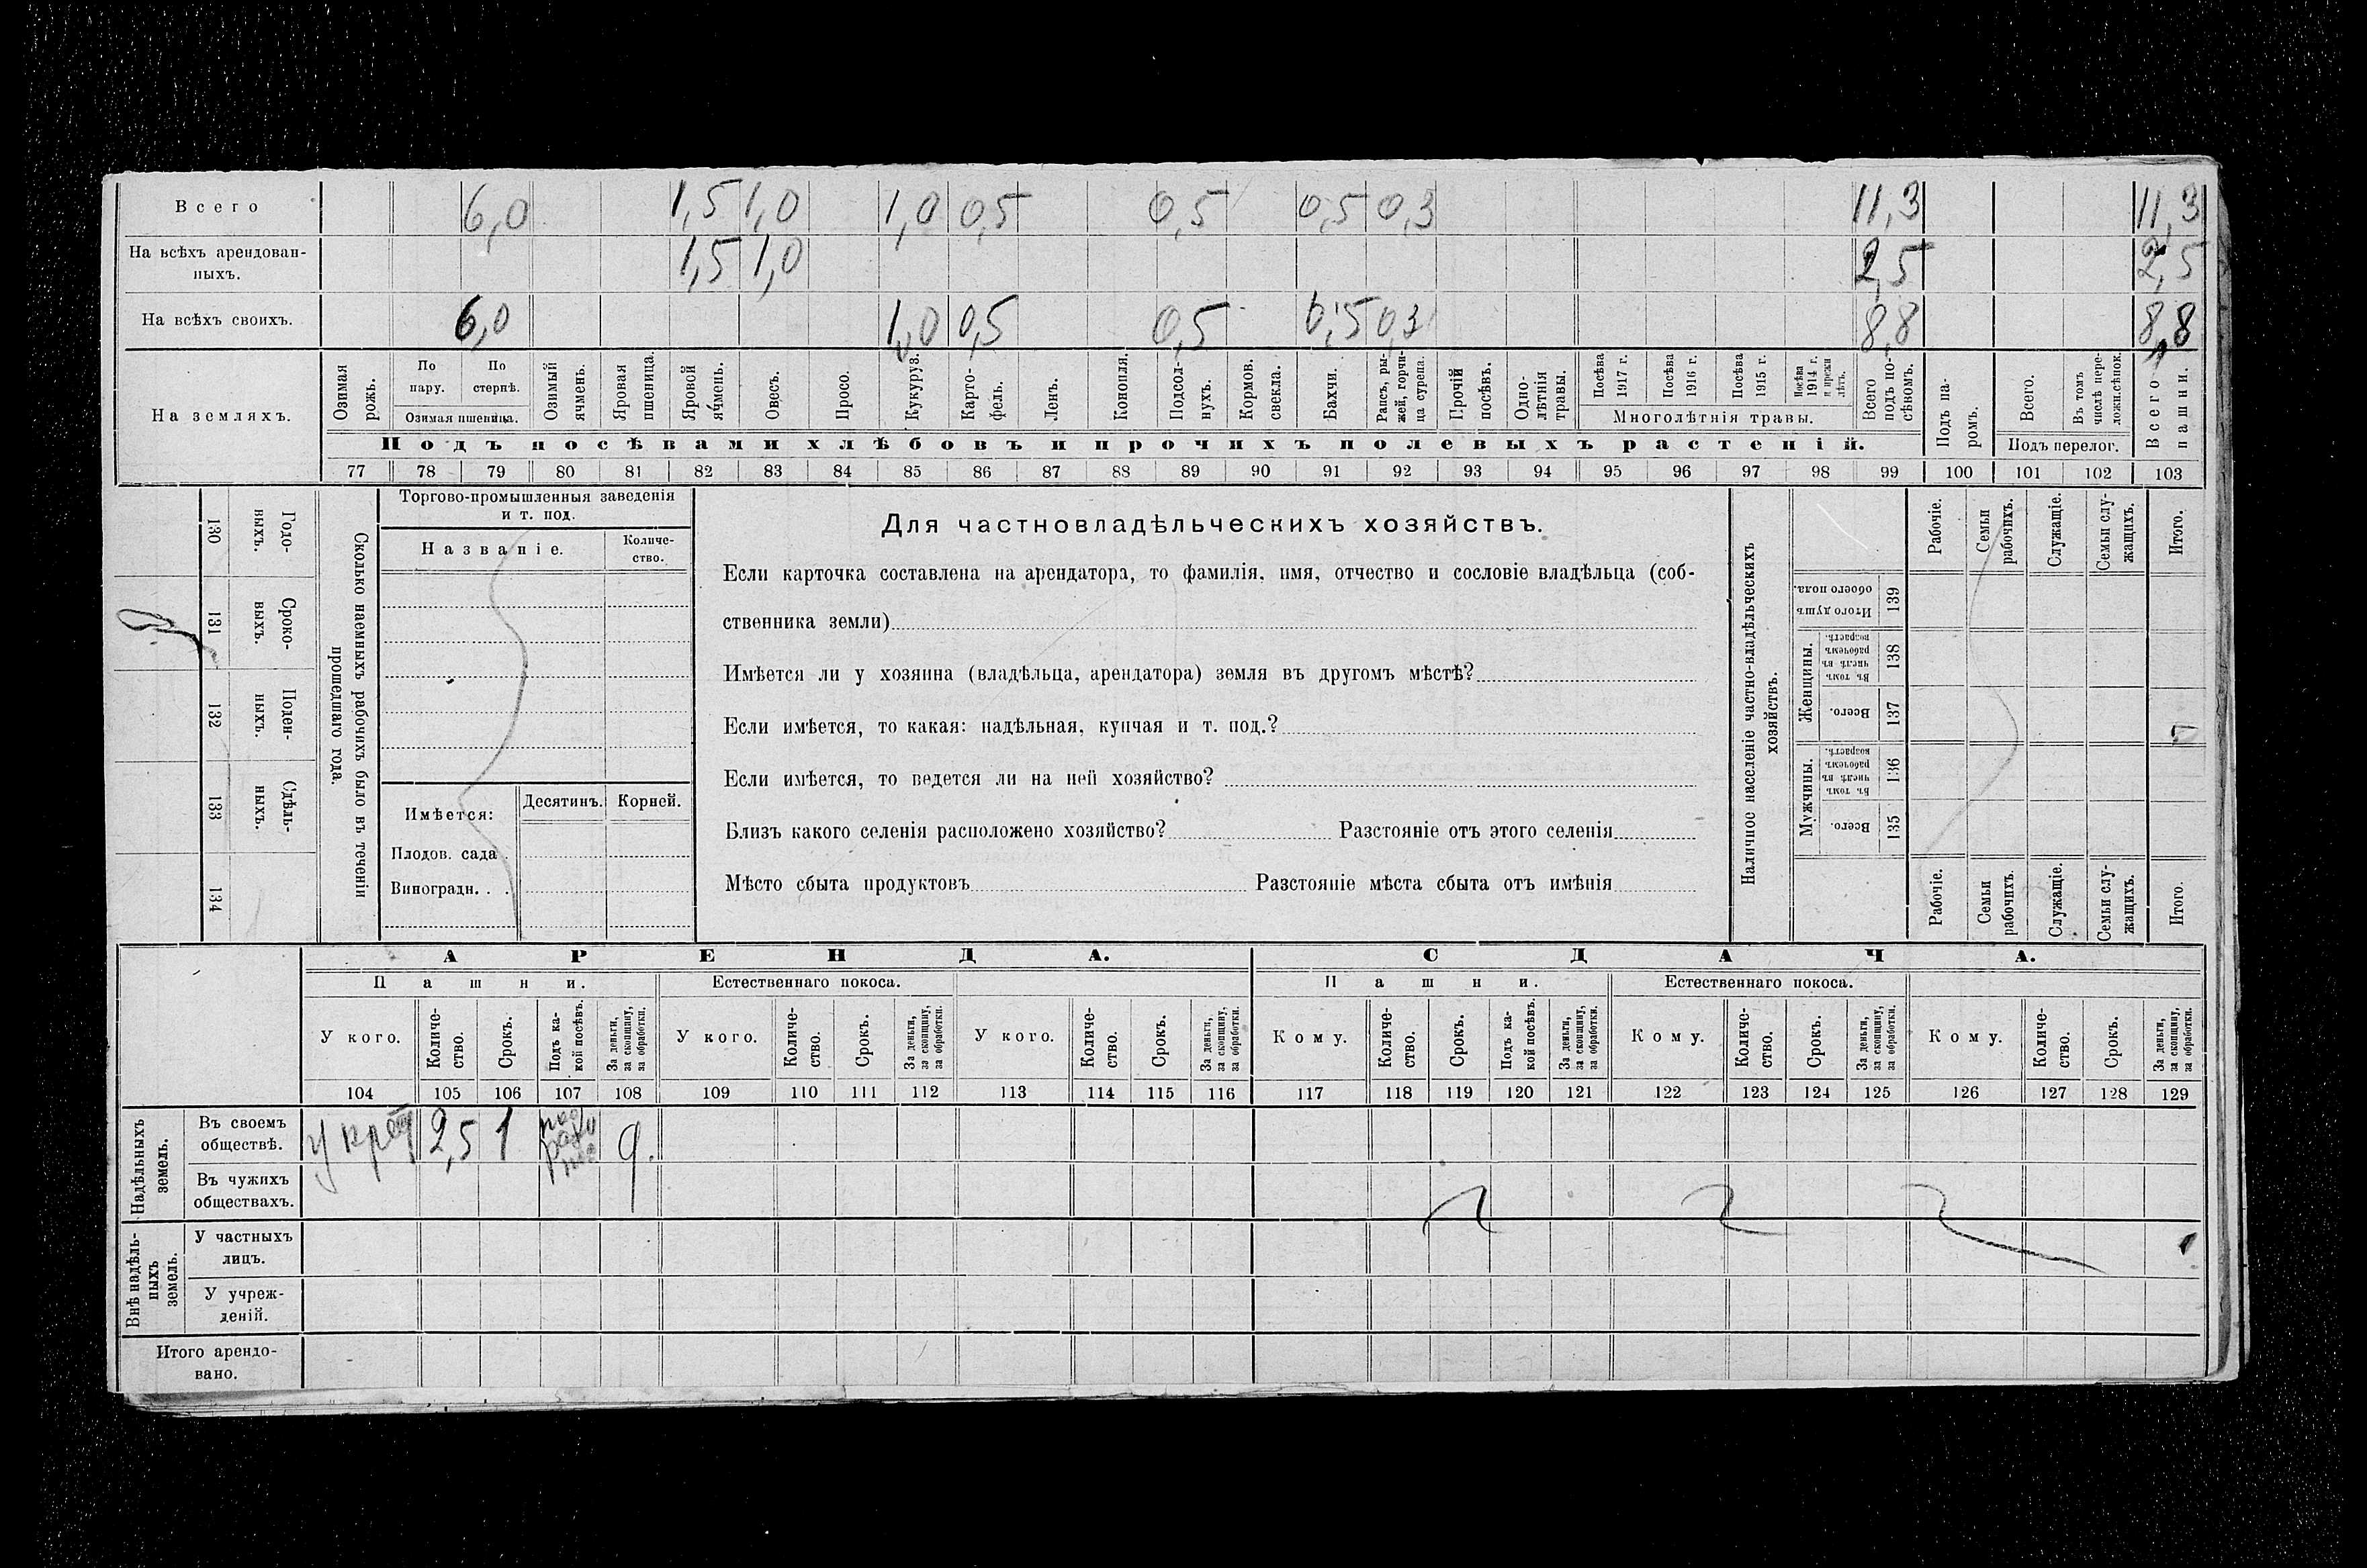 Всего 6,0 1,5 1,0 1,0 0,5 0,5 0,5 0,3 11,3 11,3
На всѣхъ арендован-
ныхъ. 1,5 1,0 2,5 2,5
На всѣхъ своихъ. 6,0 1,0 0,5 0,5 0,5 0,3 8,8 8,8
На земляхъ.
Озимая рожь.
По пару.
По стернѣ.
Озимая пшеница.
Озимый ячмень.
Яровая пшеница.
Яровой ячмень.
Овесъ.
Просо.
Кукуруз.
Карто-
фель.
Ленъ.
Конопля.
Подсол-
нухъ.
Кормов.
свекла.
Бахчи.
Рапсъ, ры-
жей, горчи-
ца сурепа.
Прочій
посѣвъ.
Одно-
лѣтнія
травы.
Посѣва 1917 г.
Посѣва 1916 г.
Посѣва 1915 г.
Посѣва 1914 г. и прежн лѣтъ.
Многолѣтнія травы.
Всего
подъ по-
сѣвомъ.
Подъ па-
ромъ.
Всего.
Въ томъ
числѣ пере-
ложн.сѣнок.
Подъ перелог.
Всего
пашни.
Подъ посѣвами хлѣбовъ и прочихъ полевыхъ растеній.
77 78 79 80 81 82 83 84 85 86 87 88 89 90 91 92 93 94 95 96 97 98 99 100 101 102 103
130 Годо-
ныхъ.
131 Сроко-
выхъ.
132 Поден-
ныхъ.
133 Сдѣль-
ныхъ.
134
Сколько наемныхъ рабочихъ было въ теченіи
прошедшаго года.
Торгово-промышленныя заведенія
и т. под.
Названіе.
Количе-
ство.
Имѣется:
Десятинъ. Корней.
Плодов. сада .
Виноградн. . .
Для частновладѣльческихъ хозяйствъ.
Если карточка составлена на арендатора, то фамилія, имя, отчество и сословіе владѣльца (соб-
ственника земли)
Имѣется ли у хозяина (владѣльца, арендатора) земля въ другомъ мѣстѣ?
Если имѣется, то какая: надѣльная, купчая и т. под.?
Если имѣется, то ведется ли на ней хозяйство?
Близъ какого селенія расположено хозяйство? Разстояніе отъ этого селенія
Мѣсто сбыта продуктовъ Разстояніе мѣста сбыта отъ имѣнія
Наличное населеніе частно-владѣльческихъ
хозяйствъ.
Рабочіе.
Семьи
рабочихъ.
Служащіе.
Семьи слу-
жащихъ.
Итого.
Итого душъ
обоего пола. 139
Женщины.
Въ томъ
числѣ въ
рабочемъ
возрастѣ. 138
Всего. 137
Мужчины.
Въ томъ
числѣ въ
рабочемъ
возрастѣ. 136
Всего. 135
Рабочіе.
Семьи
рабочихъ.
Служащіе.
Семьи слу-
жащихъ.
Итого.
АРЕНДА. СДАЧА.
Пашни. Естественнаго покоса. Пашни. Естественнаго покоса.
У кого.
Количе-
ство.
Срокъ.
Подъ ка-
кой посѣвъ.
За деньги,
за скопщину,
за обработки.
У кого.
Количе-
ство.
Срокъ.
За деньги,
за скопщину,
за обработки.
У кого.
Количе-
ство.
Срокъ.
За деньги,
за скопщину,
за обработки.
Кому.
Количе-
ство.
Срокъ.
Подъ ка-
кой посѣвъ.
За деньги,
за скопщину,
за обработки.
Кому.
Количе-
ство.
Срокъ.
За деньги,
за скопщину,
за обработки.
Кому.
Количе-
ство.
Срокъ.
За деньги,
за скопщину,
за обработки.
104 105 106 107 108 109 110 111 112 113 114 115 116 117 118 119 120 121 122 123 124 125 126 127 128 129
Надѣльныхъ
земель.
Въ своемъ
обществѣ. у 2,5 1
Въ чужихъ
обществахъ.
Внѣ надѣль-
ныхъ
земель.
У частныхъ
лицъ.
У учреж-
деній.
Итого арендо-
вано.